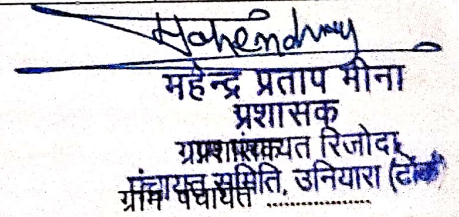 Mahendra
महेन्द्र प्रताप मीना
प्रशासक
ग्राम पंचायत रिजोदा
पंचायत समिति, उनियारा (टोंक)
ग्राम पंचायत ..................